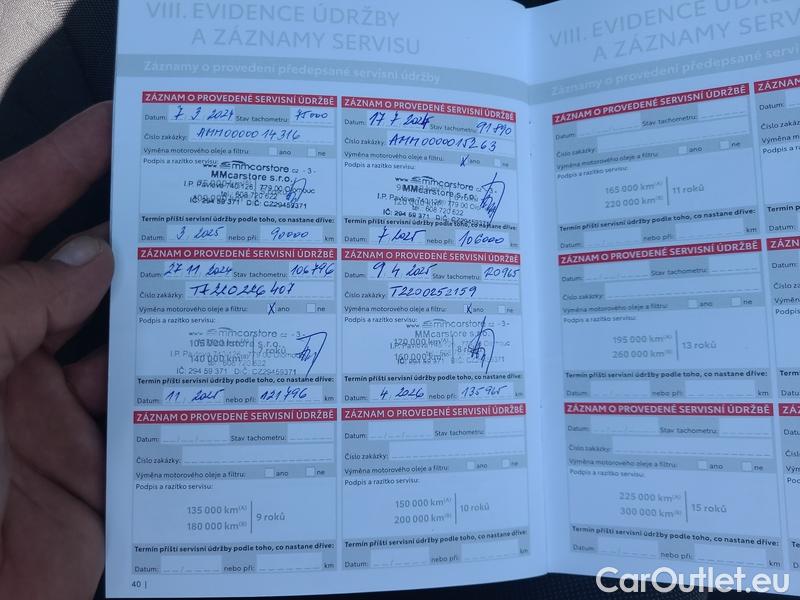 VIII. EVIDENCE ÚDRŽBY
A ZÁZNAMY SERVISU
Záznamy o provedení předepsané servisní údržby
ZÁZNAM O PROVEDENÉ SERVISNÍ ÚDRŽBĚ
Datum: 7 3 2024 Stav tachometru: 75000
Číslo zakázky: AMM0000014316
Výměna motorového oleje a filtru: ano ne
Podpis a razítko servisu:
www. mmcarstore cz - 3 -
MMcarstore s.r.o.
I.P. Pavlova 740/126, 779 00 Olomouc
IČ: 294 59 371 DIČ: CZ29459371
Termín příští servisní údržby podle toho, co nastane dříve:
Datum: 3. 2025 nebo při: 90000 km
ZÁZNAM O PROVEDENÉ SERVISNÍ ÚDRŽBĚ
Datum: 17 7 Stav tachometru: 91790
Číslo zakázky: AMM0000015263
Výměna motorového oleje a filtru: X ano ne
Podpis a razítko servisu:
www. mmcarstore cz - 3 -
MMcarstore s.r.o.
IČ: 294 59 371 DIČ: CZ29459371
Termín příští servisní údržby podle toho, co nastane dříve:
Datum: 7 2025 nebo při: 106000 km
ZÁZNAM O PROVEDENÉ SERVISNÍ ÚDRŽBĚ
Datum: 27 11 2024 Stav tachometru: 106796
Číslo zakázky: T7220226407
Výměna motorového oleje a filtru: X ano ne
Podpis a razítko servisu:
www. mmcarstore cz - 3 -
140 000 km
IČ: 294 59 371 DIČ: CZ29459371
Termín příští servisní údržby podle toho, co nastane dříve:
Datum: 11. 2025 nebo při: 121796 km
ZÁZNAM O PROVEDENÉ SERVISNÍ ÚDRŽBĚ
Datum: 9 4 2025 Stav tachometru: 120965
Číslo zakázky: T2200252159
Výměna motorového oleje a filtru: X ano ne
Podpis a razítko servisu:
www. mmcarstore cz - 3 -
MMcarstore s.r.o.
120 000 km
IČ: 294 59 371 DIČ: CZ29459371
Termín příští servisní údržby podle toho, co nastane dříve:
Datum: 4 2026 nebo při: 135965 km
ZÁZNAM O PROVEDENÉ SERVISNÍ ÚDRŽBĚ
Datum: Stav tachometru:
Číslo zakázky:
Výměna motorového oleje a filtru: ano ne
Podpis a razítko servisu:
135 000 km(A)
180 000 km(B) 9 roků
Termín příští servisní údržby podle toho, co nastane dříve:
Datum: nebo při: km
ZÁZNAM O PROVEDENÉ SERVISNÍ ÚDRŽBĚ
Datum: Stav tachometru:
Číslo zakázky:
Výměna motorového oleje a filtru: ano ne
Podpis a razítko servisu:
150 000 km(A)
200 000 km(B) 10 roků
Termín příští servisní údržby podle toho, co nastane dříve:
Datum: nebo při: km
40 |
VIII. EVIDENCE ÚDRŽ
A ZÁZNAMY SERV
Záznamy o provedení předepsané servisní
ZÁZNAM O PROVEDENÉ SERVISNÍ ÚDRŽBĚ
Datum: Stav tachometru:
Číslo zakázky:
Výměna motorového oleje a filtru: ano ne
Podpis a razítko servisu:
165 000 km(A)
220 000 km(B) 11 roků
Termín příští servisní údržby podle toho, co nastane dříve:
Datum: nebo při: km
ZÁZNAM O PROVEDENÉ SERVISNÍ ÚDRŽBĚ
Datum: Stav tachometru:
Číslo zakázky:
Výměna motorového oleje a filtru: ano ne
Podpis a razítko servisu:
195 000 km(A)
260 000 km(B) 13 roků
Termín příští servisní údržby podle toho, co nastane dříve:
Datum: nebo při: km
ZÁZNAM O PROVEDENÉ SERVISNÍ ÚDRŽBĚ
Datum: Stav tachometru:
Číslo zakázky:
Výměna motorového oleje a filtru: ano ne
Podpis a razítko servisu:
225 000 km(A)
300 000 km(B) 15 roků
Termín příští servisní údržby podle toho, co nastane dříve:
Datum: nebo při:
CarOutlet.eu